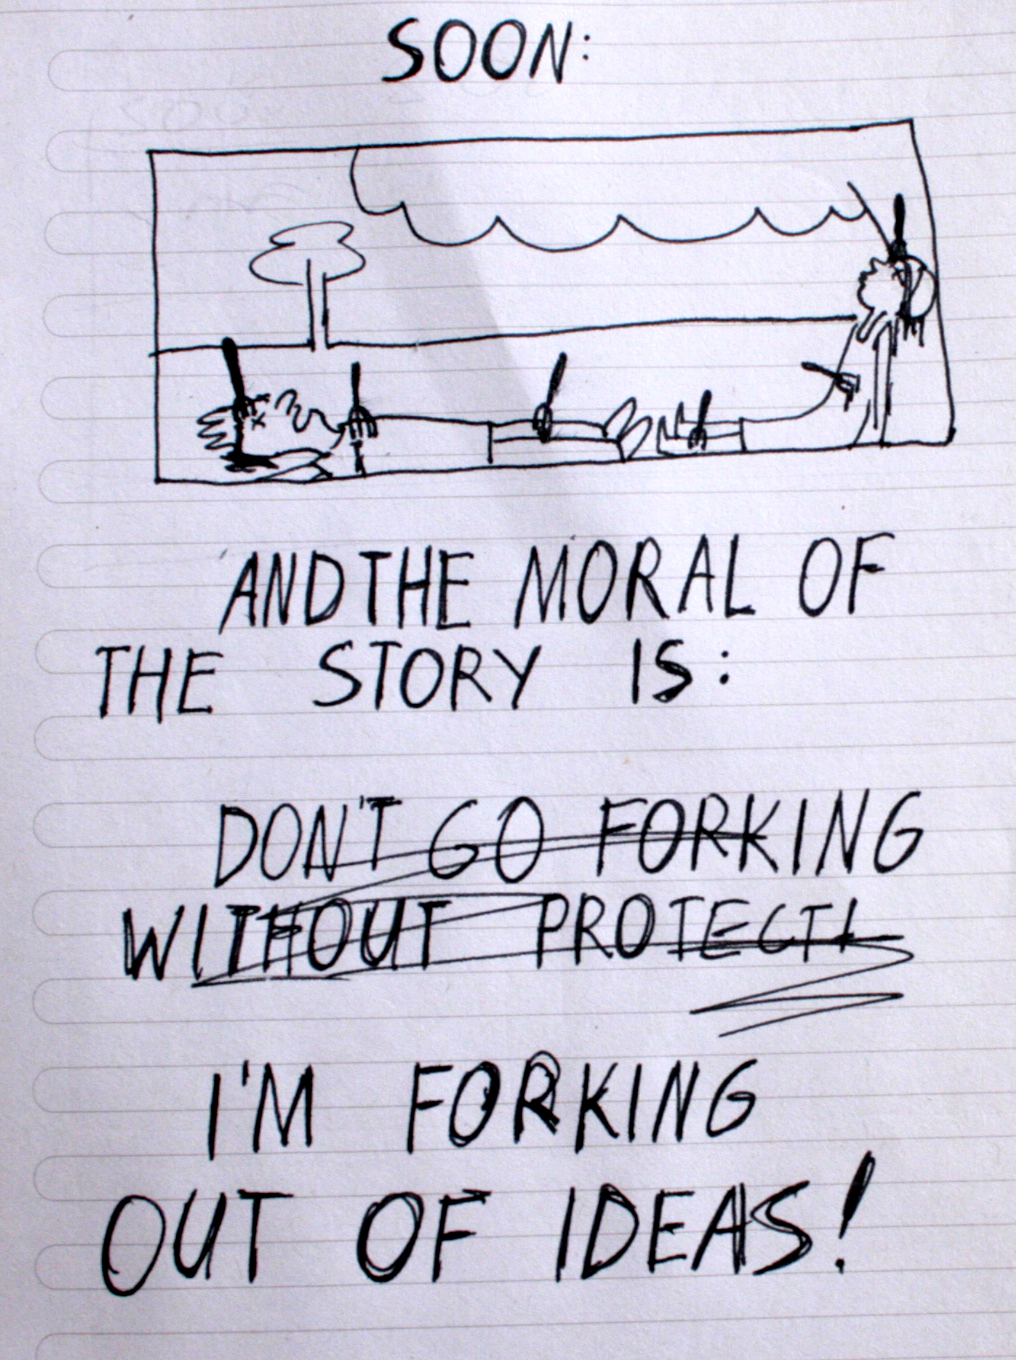 SOON:
AND THE MORAL OF
THE STORY IS:
DON'T GO FORKING
WITHOUT PROTECTI
I'M FORKING
OUT OF IDEAS!